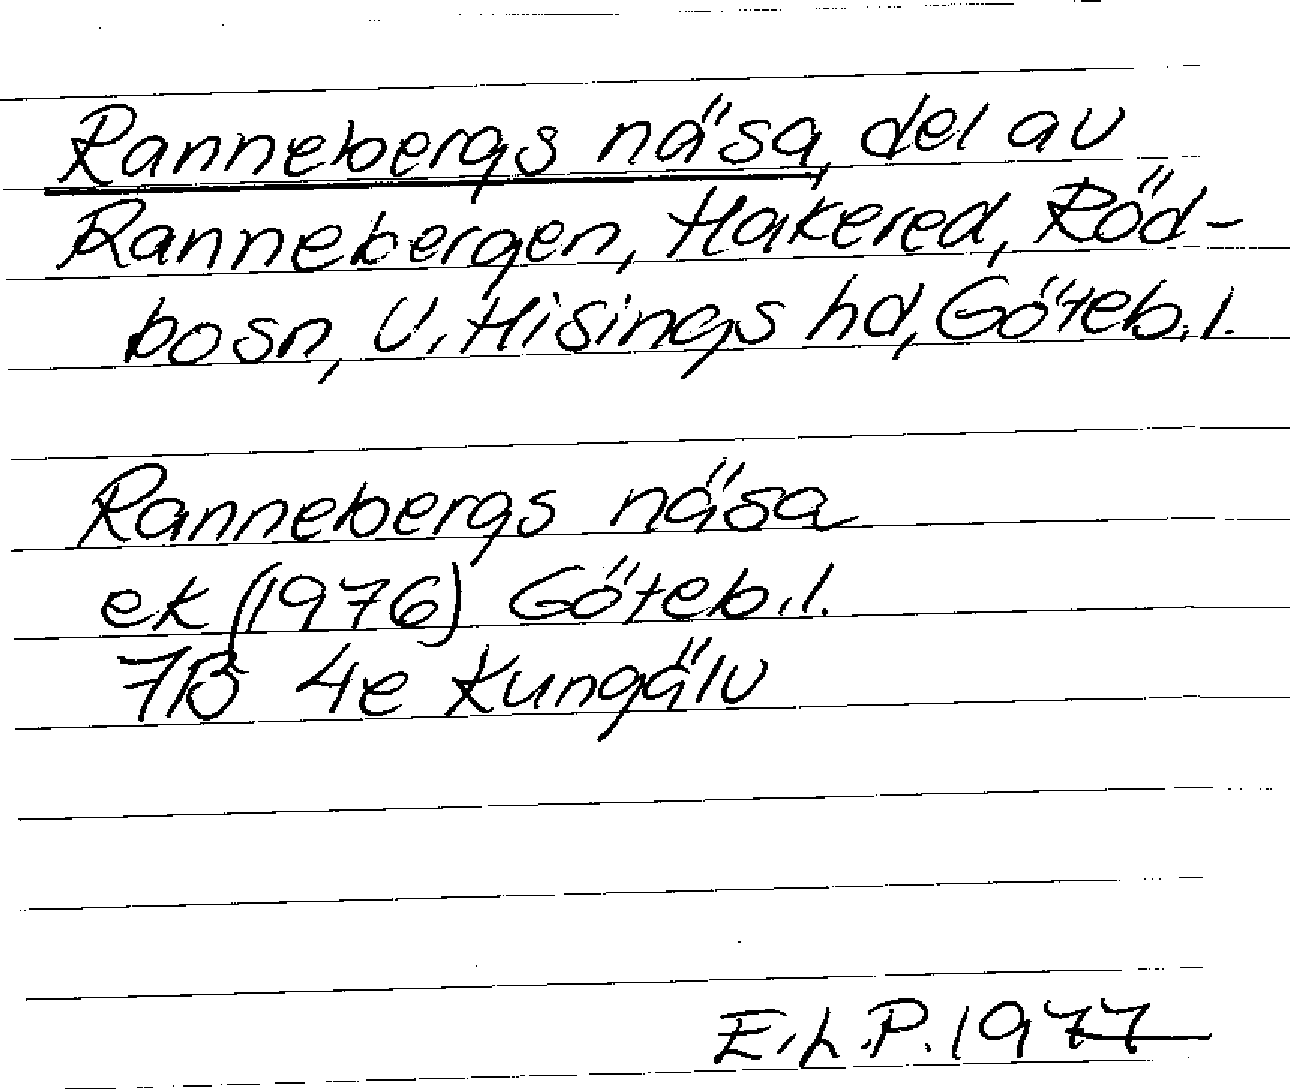 Rannebergs näsa, del av
Rannebergen, Hakered, Röd-
bosn, V. Hisings hd, Göteb. l.
Rannebergs näsa
ek (1976) Göteb. l.
7B 4e Kungälv
E.L.P. 1977